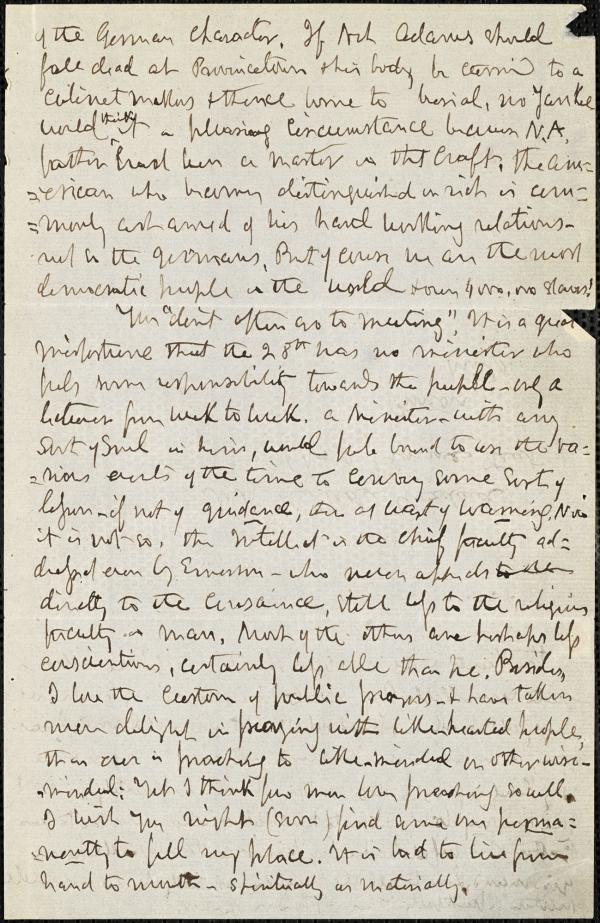 of the German character. If Neh Adams should
fall dead at Provincetown & his body be carried to a
Cabinet makers & thence borne to burial, no Yankee
would think it a pleasing circumstance because N.A.
father had been a master in that craft. The Am-
=erican who becomes distinguished or rich is com-
=monly ashamed of his hard working relations -
not so the Germans. But of course we are the most
democratic people in the world & own 4,000,000 slaves!
You "don't often go to meeting". It is a great
misfortune that the 28th has no minister who
feels some responsibility towards the people - only a
lecturer from week to week. A Minister - with any
sort of soul in him, would feel bound to use the va-
=rious events of the time to convey some sort of
lesson - if not of guidance, then at least of warning. Now
it is not so. The Intellect is the chief faculty ad-
dressed even by Emerson - who never appeals to the
directly to the Conscience, still less to the religious
faculty in man. Most of the others are perhaps less
conscientious, certainly less able than he. Besides,
I love the Custom of public prayers - & have taken
more delight in praying with like-hearted people,
than ever in preaching to like-minded or otherwise-
-minded: Yet I think few men love preaching so well.
I wish you might (soon) find some one perma=
=nently to fill my place. It is bad to live from
hand to mouth - spiritually as materially.